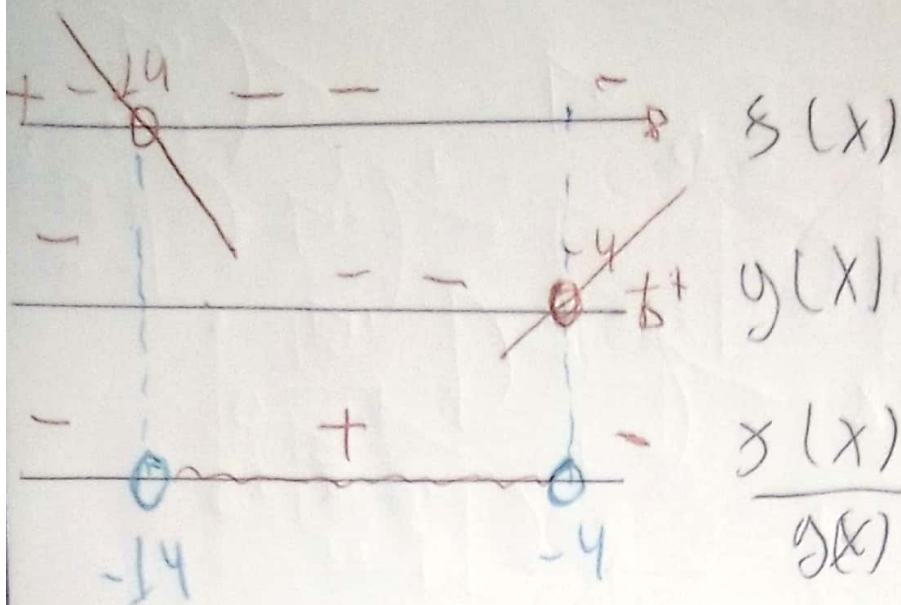 + -14 - - - f(x)
- - - -4 + g(x)
- + - f(x)
g(x)
-14 -4